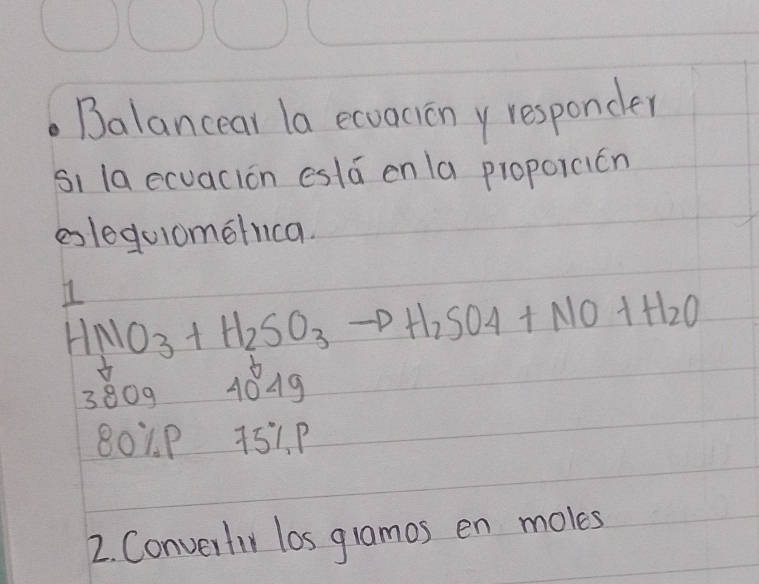 • Balancear la ecuación y responder
si la ecuación está en la proporción
estequiométrica.
1
HNO3 + H2SO3 → H2SO4 + NO + H2O
↓ ↓
380g 404g
80%P 75%P
2. Convertir los gramos en moles